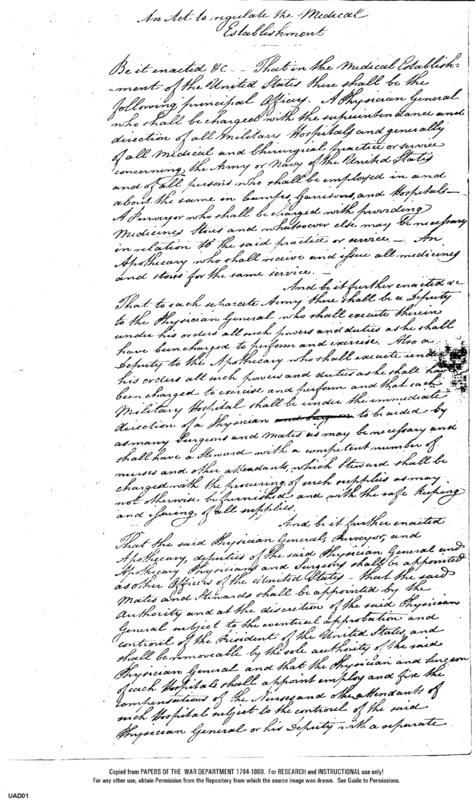 An Act to regulate the Medical
Establishment
Be it enacted &c — That in the Medical Establish-
-ment of the United States there shall be the
following principal Officers. A Physician General
who shall be charged with the superintendance and
direction of all Military Hospitals and generally
of all Medical and Chirurgical practice or service
concerning the Army or Navy of the United States
and of all persons who shall be employed in and
about the same in Camps, Garrisons, and Hospitals —
A Purveyor who shall be charged with providing
Medicines Stores and whatsoever else may be necessary
in relation to the said practice or service. — An
Apothecary who shall receive and issue all medicines
and stores for the same service. —
And be it further enacted &c
That to each separate Army there shall be a Deputy
to the Physician General who shall execute therein
under his orders all such powers and duties as he shall
have been charged to perform and exercise. Also a
Deputy to the Apothecary who shall execute under
his orders all such powers and duties as he shall have
been charged to exercise and perform and that each
Military Hospital shall be under the immediate
direction of a Physician to be aided by
as many Surgeons and Mates as may be necessary and
shall have a Steward with a competent number of
nurses and other attendants, which Steward shall be
charged with the procuring of such supplies as may
not otherwise be furnished and with the safe keeping
and issuing of all supplies.
And be it further enacted
That the said Physician General, Purveyor, and
Apothecary, deputies of the said Physician General and
Apothecary Physicians and Surgeons shall be appointed
as other Officers of the United States — that the said
Mates and Stewards shall be appointed by the
Authority and at the discretion of the said Physician
General subject to the eventual approbation and
controul of the President of the United States, and
shall be removeable by the sole authority of the said
Physician General and that the Physician and Surgeon
of each Hospitals shall appoint employ and fix the
compensations of the Nurses and other attendants of
such Hospital subject to the controul of the said
Physician General or his Deputy with a separate
Copied from PAPERS OF THE WAR DEPARTMENT 1784-1800. For RESEARCH and INSTRUCTIONAL use only!
For any other use, obtain Permission from the Repository from which the source image was drawn. See Guide to Permissions.
UAD01